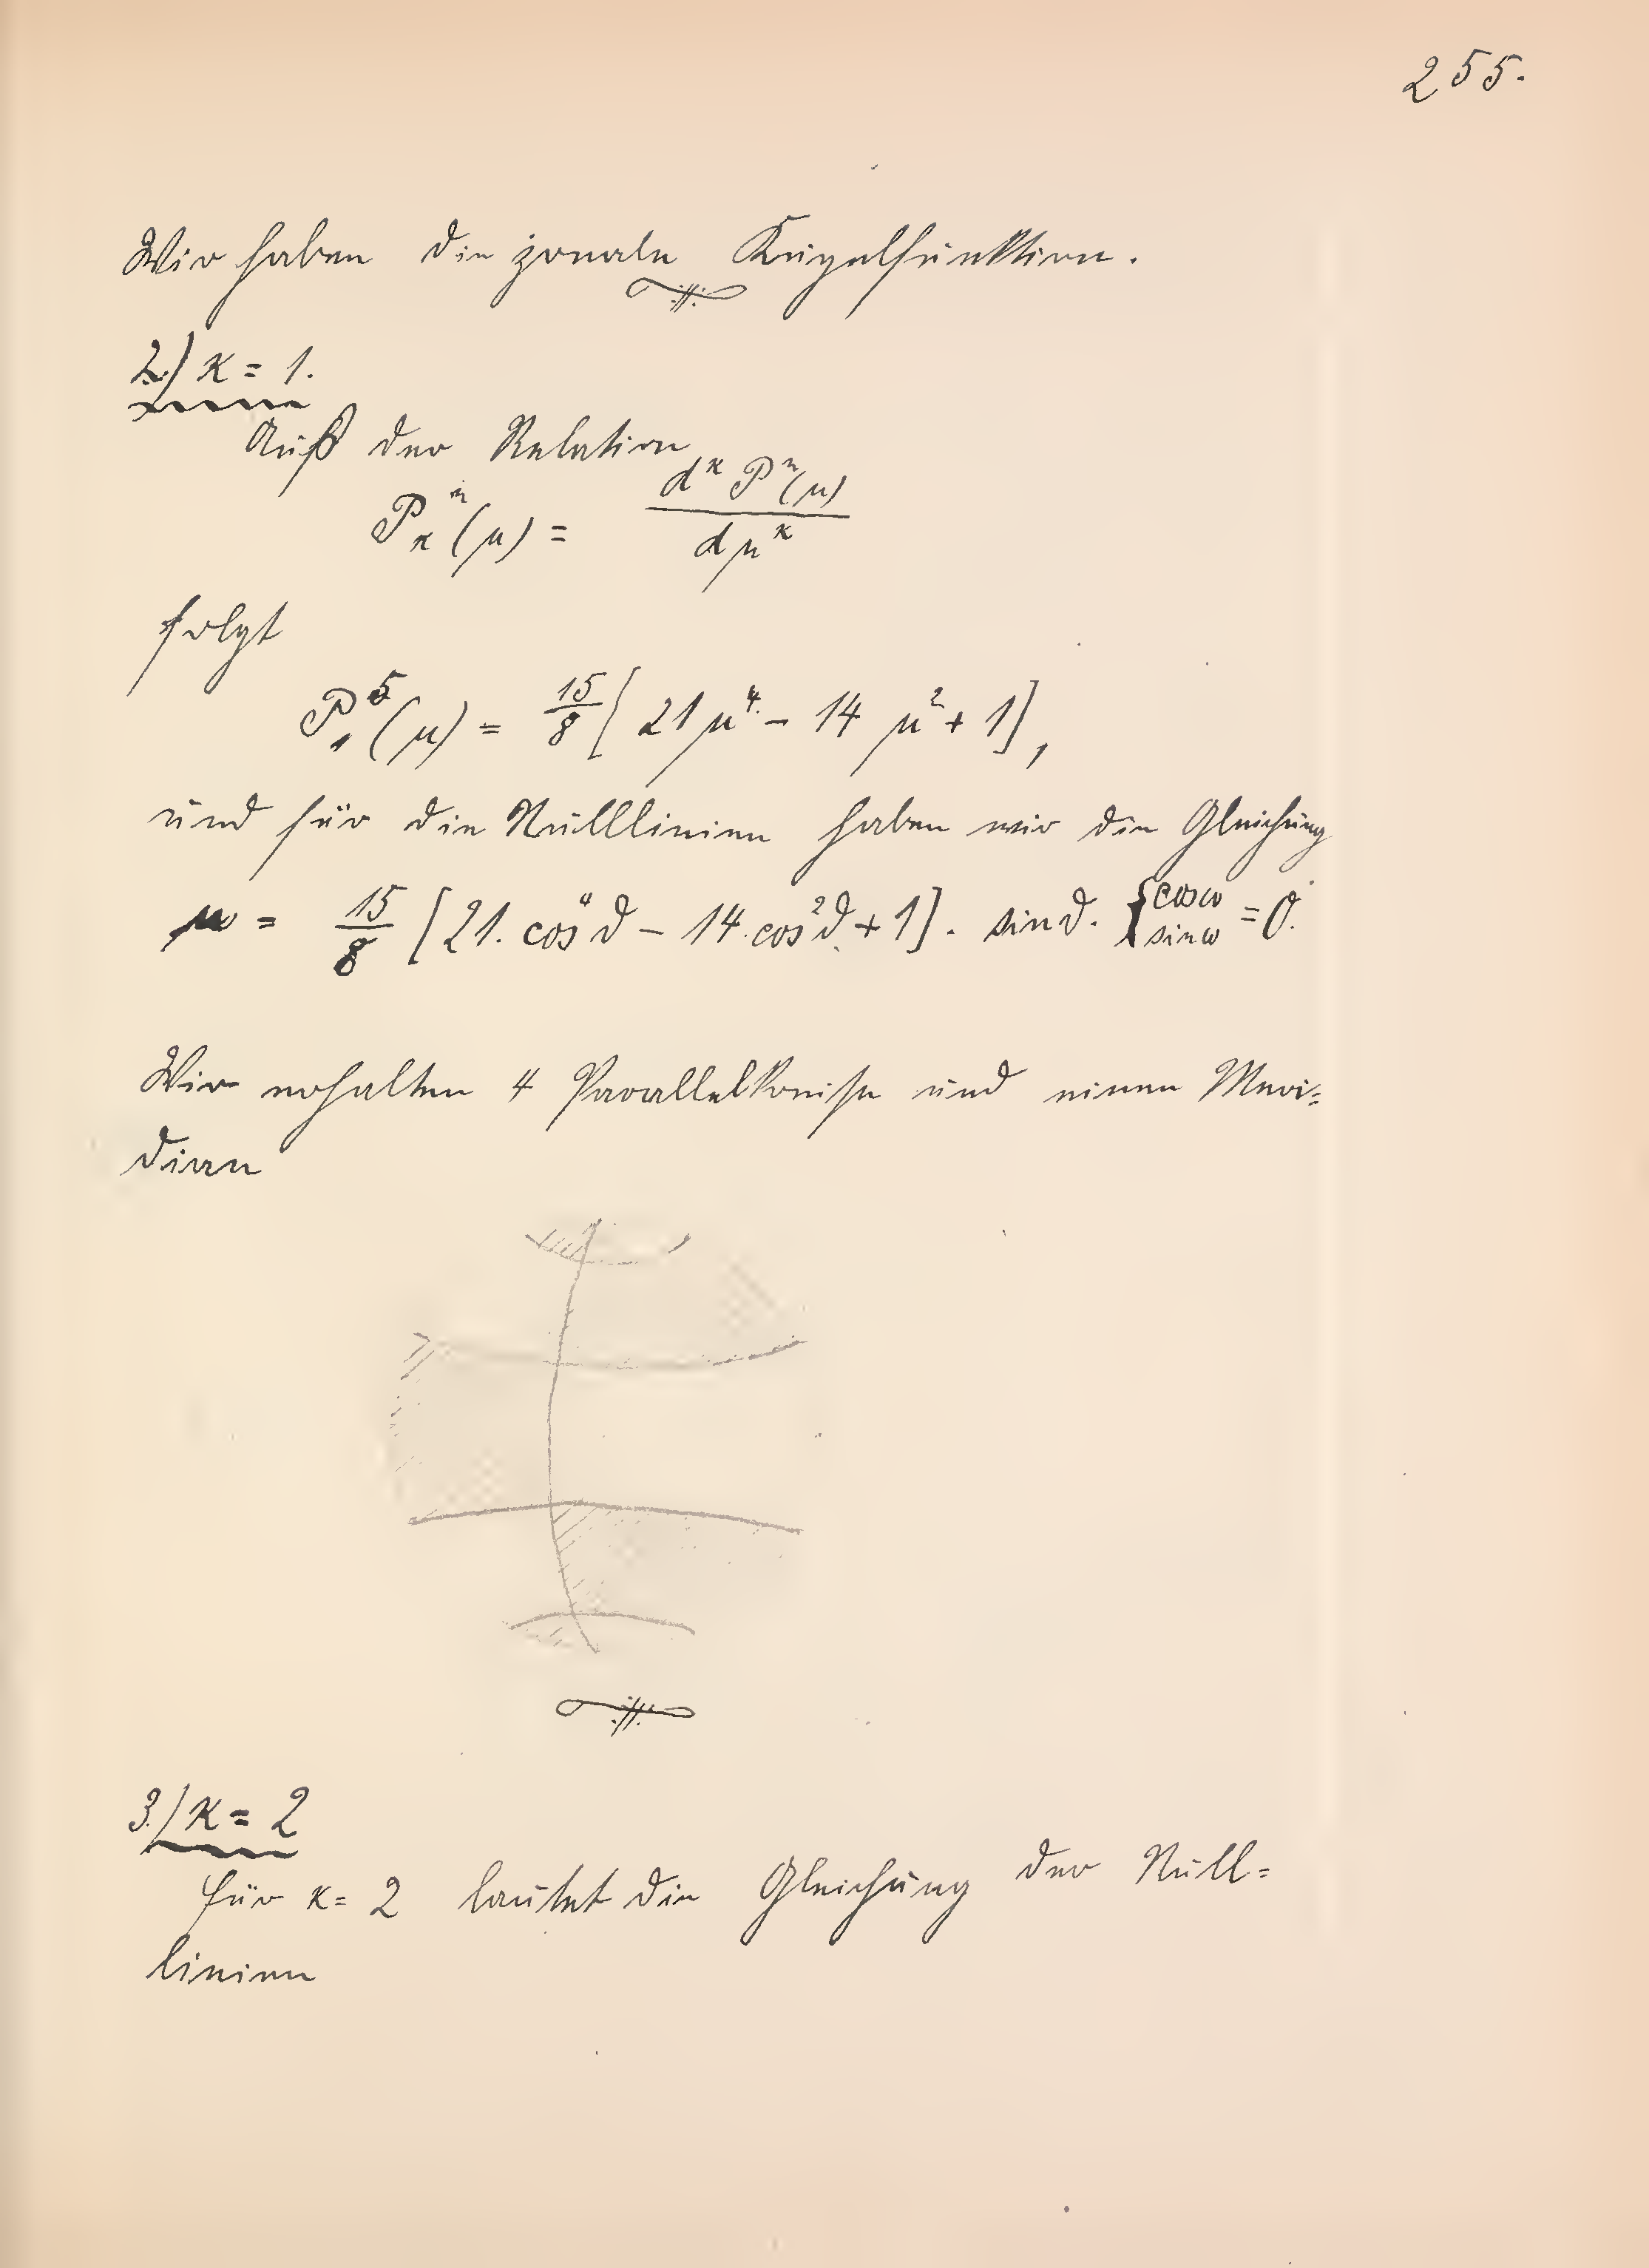 255.
Wir haben die zonale Kugelfunktion.
2.) κ = 1.
Auß der Relation
P_κ^n (μ) = d^κ P^n(μ) / dμ^κ
folgt
P_1^5 (μ) = 15/8 [ 21 μ^4 - 14 μ^2 + 1 ],
und für die Nulllinien haben wir die Gleichung
w = 15/8 [ 21. cos^4 ϑ - 14. cos^2 ϑ + 1 ]. sin ϑ. { cos ω / sin ω = 0.
Wir erhalten 4 Parallelkreise und einen Meri=
dian
3.) κ = 2
für κ = 2 lautet die Gleichung der Null=
linien